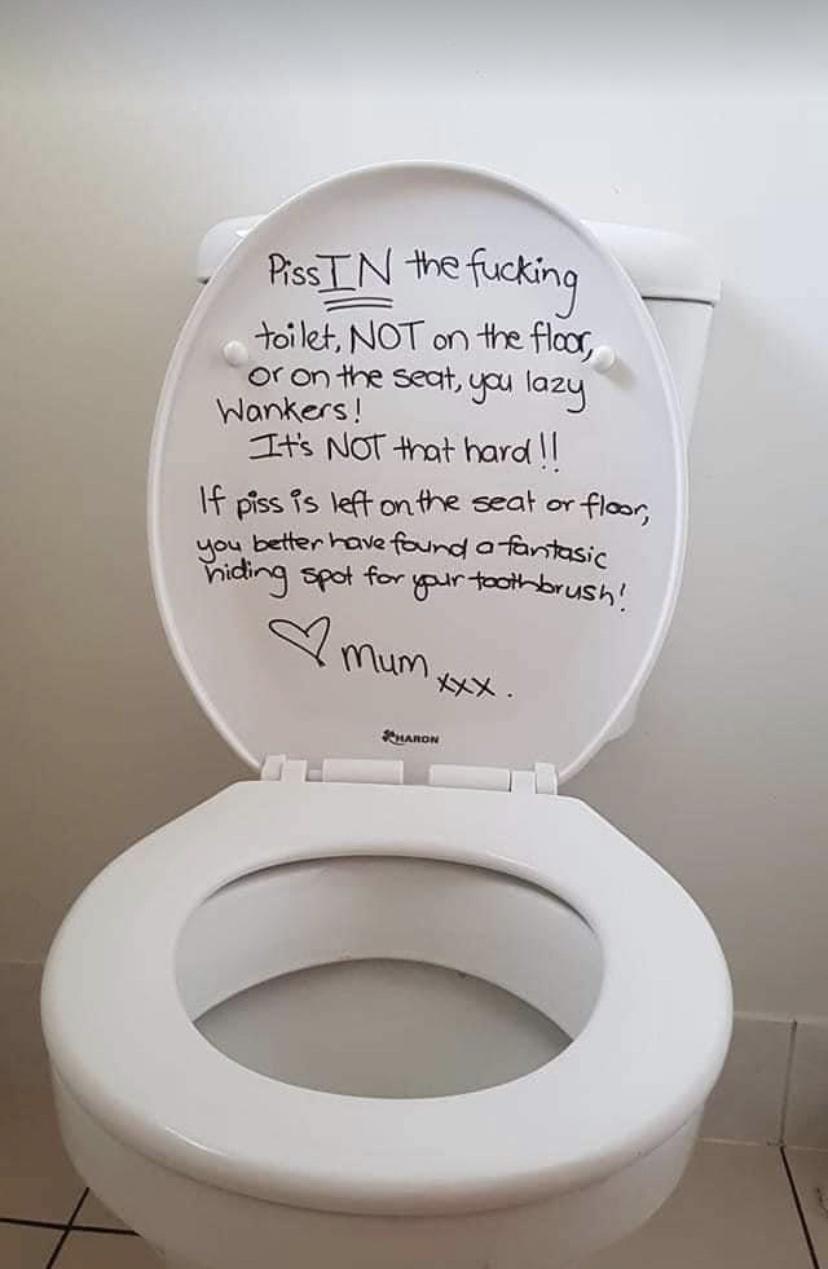 Piss IN the fucking
toilet, NOT on the floor,
or on the seat, you lazy
Wankers!
It's NOT that hard!!
If piss is left on the seat or floor,
you better have found a fantasic
hiding spot for your toothbrush!
♡ Mum xxx.
HARON